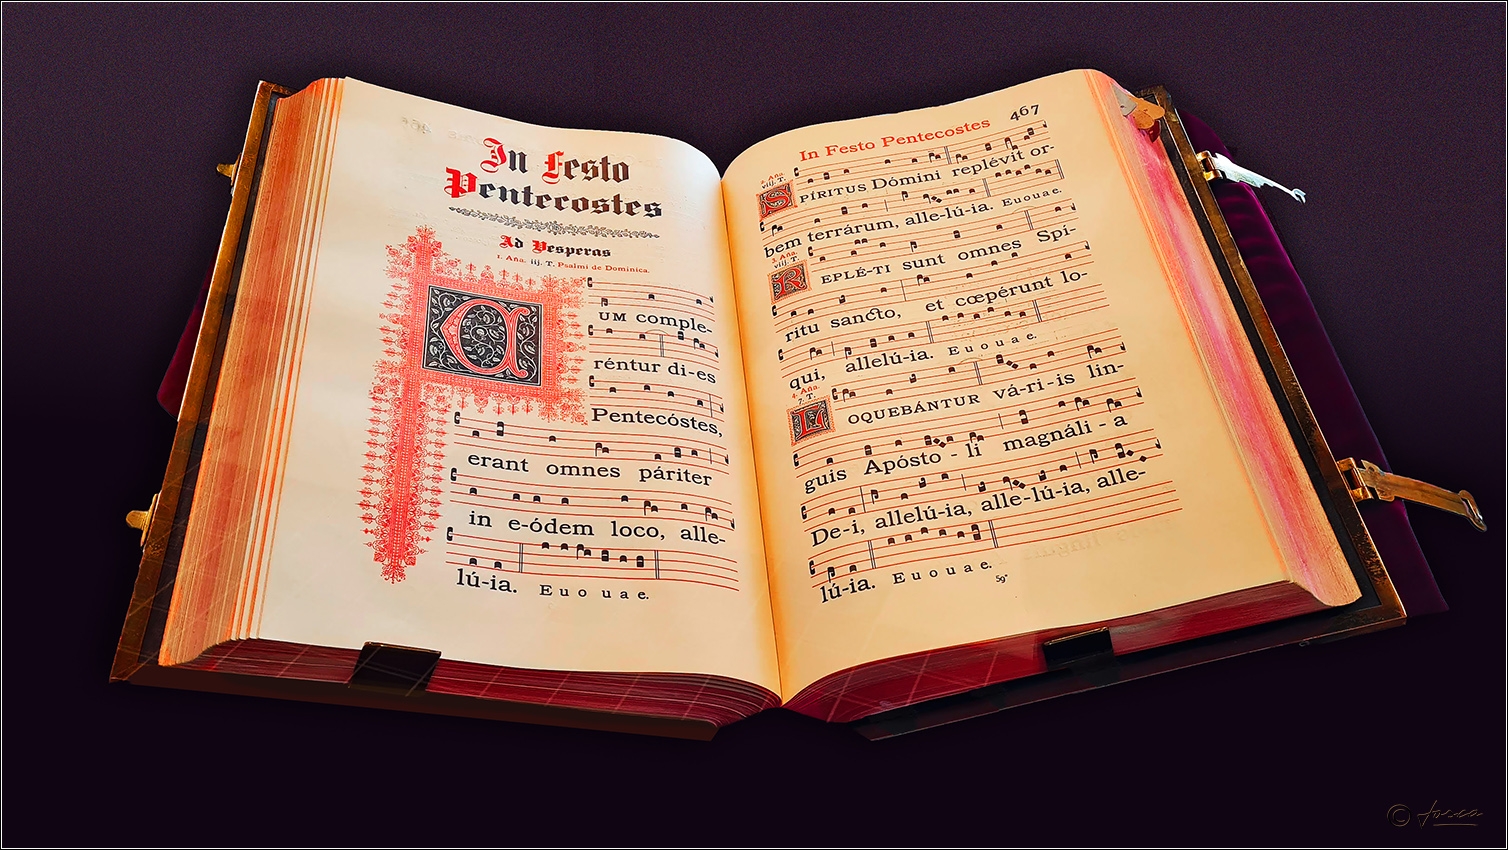 In Festo
Pentecostes
Ad Vesperas
1. Aña. iij. T. Psalmi de Dominica.
CUM comple-
réntur di-es
Pentecóstes,
erant omnes páriter
in e-ódem loco, alle-
lú-ia. E u o u a e.
In Festo Pentecostes 467
2. Aña.
viij. T.
SPÍRITUS Dómini replévit or-
bem terrárum, alle-lú-ia. E u o u a e.
3. Aña.
viij. T.
REPLÉ-TI sunt omnes Spí-
ritu sancto, et cœpérunt lo-
qui, allelú-ia. E u o u a e.
4. Aña.
7. T.
LOQUEBÁNTUR vá-ri-is lin-
guis Apósto-li magnáli-a
De-i, allelú-ia, alle-lú-ia, alle-
lú-ia. E u o u a e.
59*